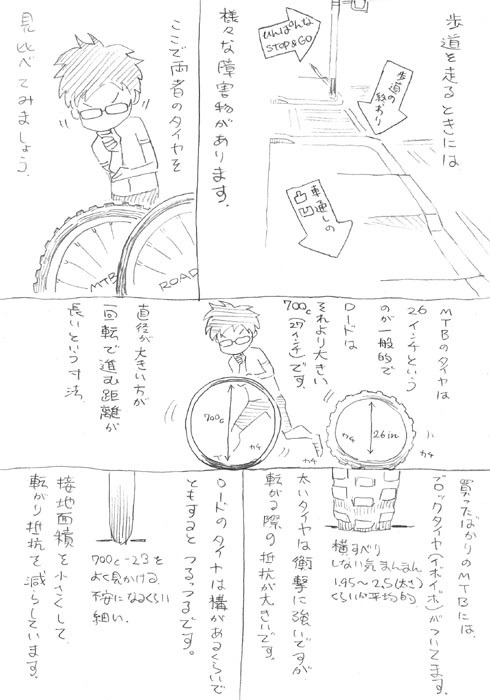 歩道を走るときには
ひんぱんな
STOP&GO
歩道の
終わり
車通しの
凸
凹
様々な障害物があります。
ここで両者のタイヤを
見比べてみましょう。
MTB
ROAD
MTBのタイヤは
26インチという
のが一般的で
ロードは
それより大きい
700c
(27インチ)です。
直径が大きい方が
一回転で進む距離が
長いという寸法。
700c
26in
カチ
カチ
カチ
買ったばかりのMTBには、
ブロックタイヤ(イボイボ)がついてます。
横すべり
しない気まんまん
1.95〜2.5(太さ)
くらいが平均的
太いタイヤは衝撃に強いですが
転がる際の抵抗が大きいです。
ロードのタイヤは溝があるくらいで
ともするとつるつるです。
700c-23を
よく見かける。
不安になるくらい
細い。
接地面積を小さくして
転がり抵抗を減らしています。